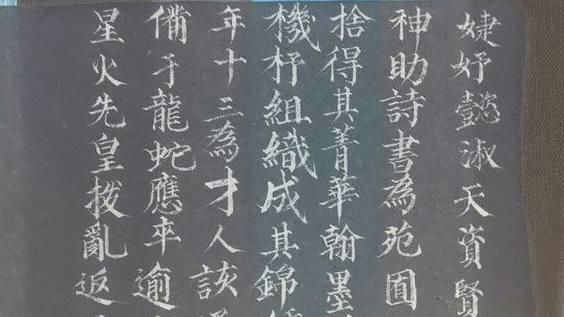 婕妤懿淑天資賢
神助詩書為苑囿
捨得其菁華翰墨
機杼組織成其錦
年十三為才人該
備于龍蛇應卒逾
星火先皇撥亂返